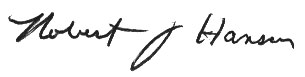 Robert J Hansen